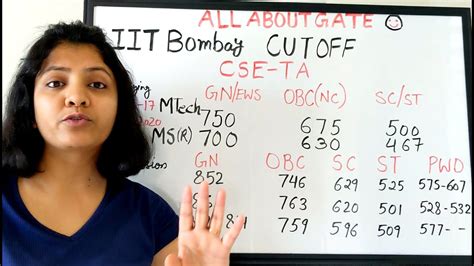 ALL ABOUT GATE
IIT Bombay CUTOFF
CSE-TA
GN/EWS OBC(NC) SC/ST
-17 MTech 750 675 500
2020 MS(R) 700 630 467
GN OBC SC ST PWD
852 746 629 525 575-607
763 620 501 528-532
759 596 509 577-